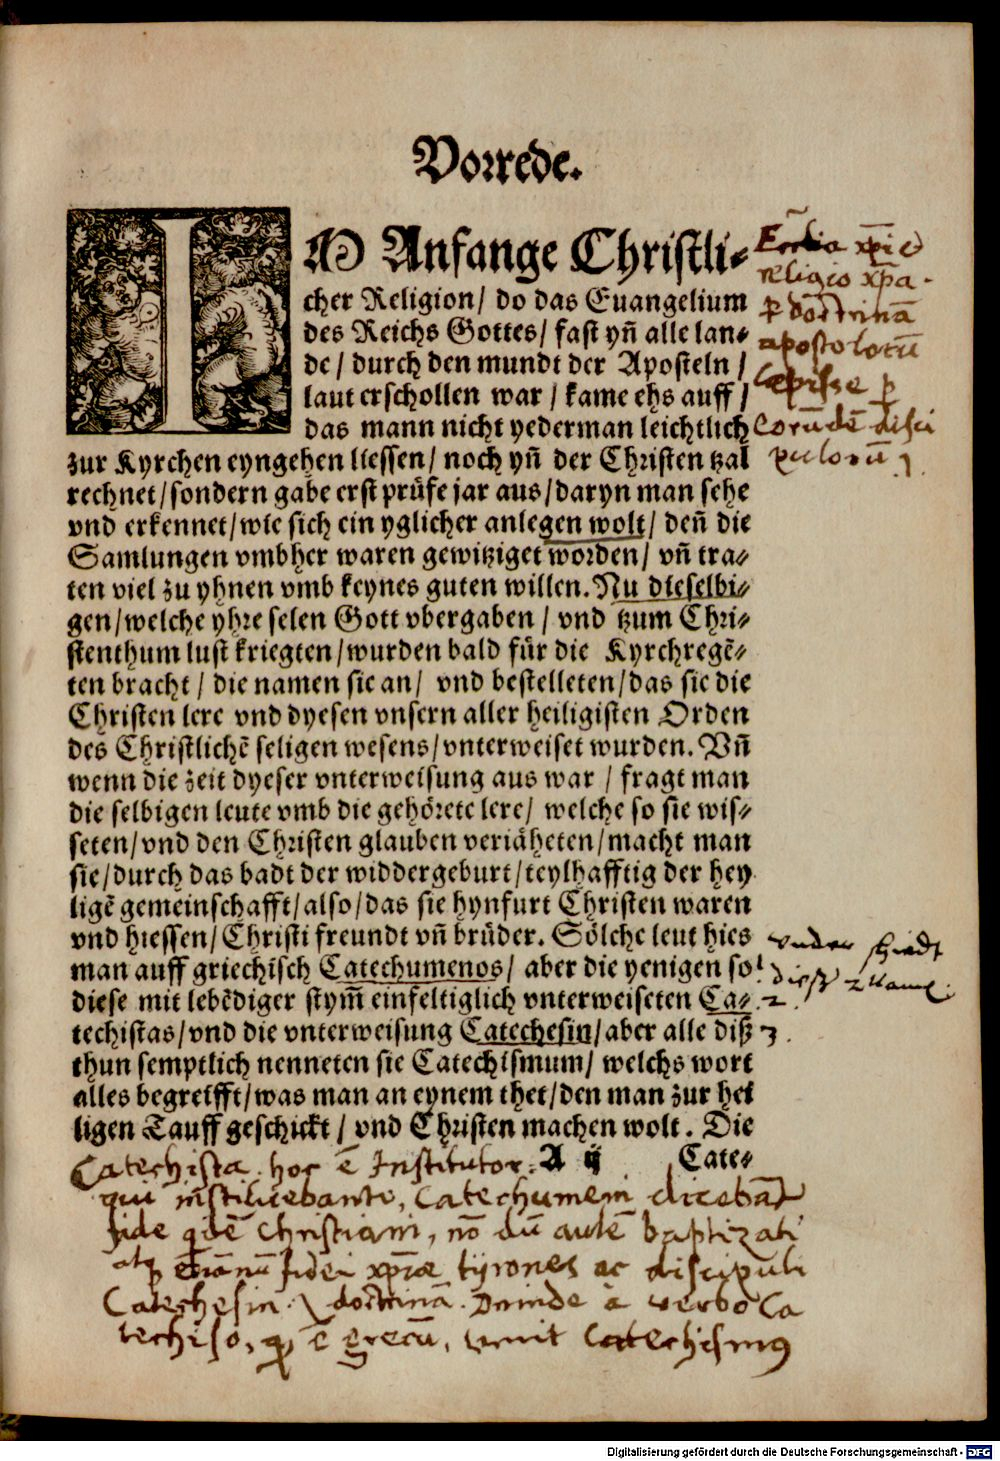 Vorrede.
IM Anfange Christli⸗
cher Religion/ do das Euangelium
des Reichs Gottes/ fast yñ alle lan⸗
de/ durch den mundt der Aposteln/
laut erschollen war/ kame ehs auff/
das mann nicht yederman leichtlich
zur Kyrchen eyngehen liessen/ noch yñ der Christen tzal
rechnet/ sondern gabe erst prüfe jar aus/ daryn man sehe
vnd erkennet/ wie sich ein yglicher anlegen wolt/ deñ die
Samlungen vmbher waren gewitziget worden/ vñ tra⸗
ten viel zu yhnen vmb keynes guten willen. Nu dieselbi⸗
gen/ welche yhre selen Gott vbergaben/ vnd tzum Chri⸗
stenthum lust kriegten/ wurden bald für die Kyrchregẽ⸗
ten bracht/ die namen sie an/ vnd bestelleten/ das sie die
Christen lere vnd dyesen vnsern aller heiligisten Orden
des Christlichẽ seligen wesens/ vnterweiset wurden. Vñ
wenn die zeit dyeser vnterweisung aus war/ fragt man
die selbigen leute vmb die gehörete lere/ welche so sie wis⸗
seten/ vnd den Christen glauben veriäheten/ macht man
sie/ durch das badt der widdergeburt/ teylhafftig der hey
ligẽ gemeinschafft/ also/ das sie hynfurt Christen waren
vnd hiessen/ Christi freundt vñ brüder. Sölche leut hies
man auff griechisch Catechumenos/ aber die yenigen so
diese mit lebẽdiger stym̃ einfeltiglich vnterweiseten Ca⸗
techistas/ vnd die vnterweisung Catechesin/ aber alle diß
thun semptlich nenneten sie Catechismum/ welchs wort
alles begreifft/ was man an eynem thet/ den man zur hei
ligen Tauff geschickt/ vnd Christen machen wolt. Die
A ij Cate⸗
religio xp̃a
ꝑ doctrinã
apostolorũ
cepisse ꝑ
eorũdẽ disci
pulorũ
Catechista hoc ẽ Institutor.
Catechumeni dicebãt
fide qdẽ Christiani, nõ dũ autẽ baptizati
fidei xp̃iae tyrones ac discipuli
Catechesin doctrinã. Deinde a verbo Ca
techiso, ẽ grecũ, venit Catechismus
Digitalisierung gefördert durch die Deutsche Forschungsgemeinschaft - DFG